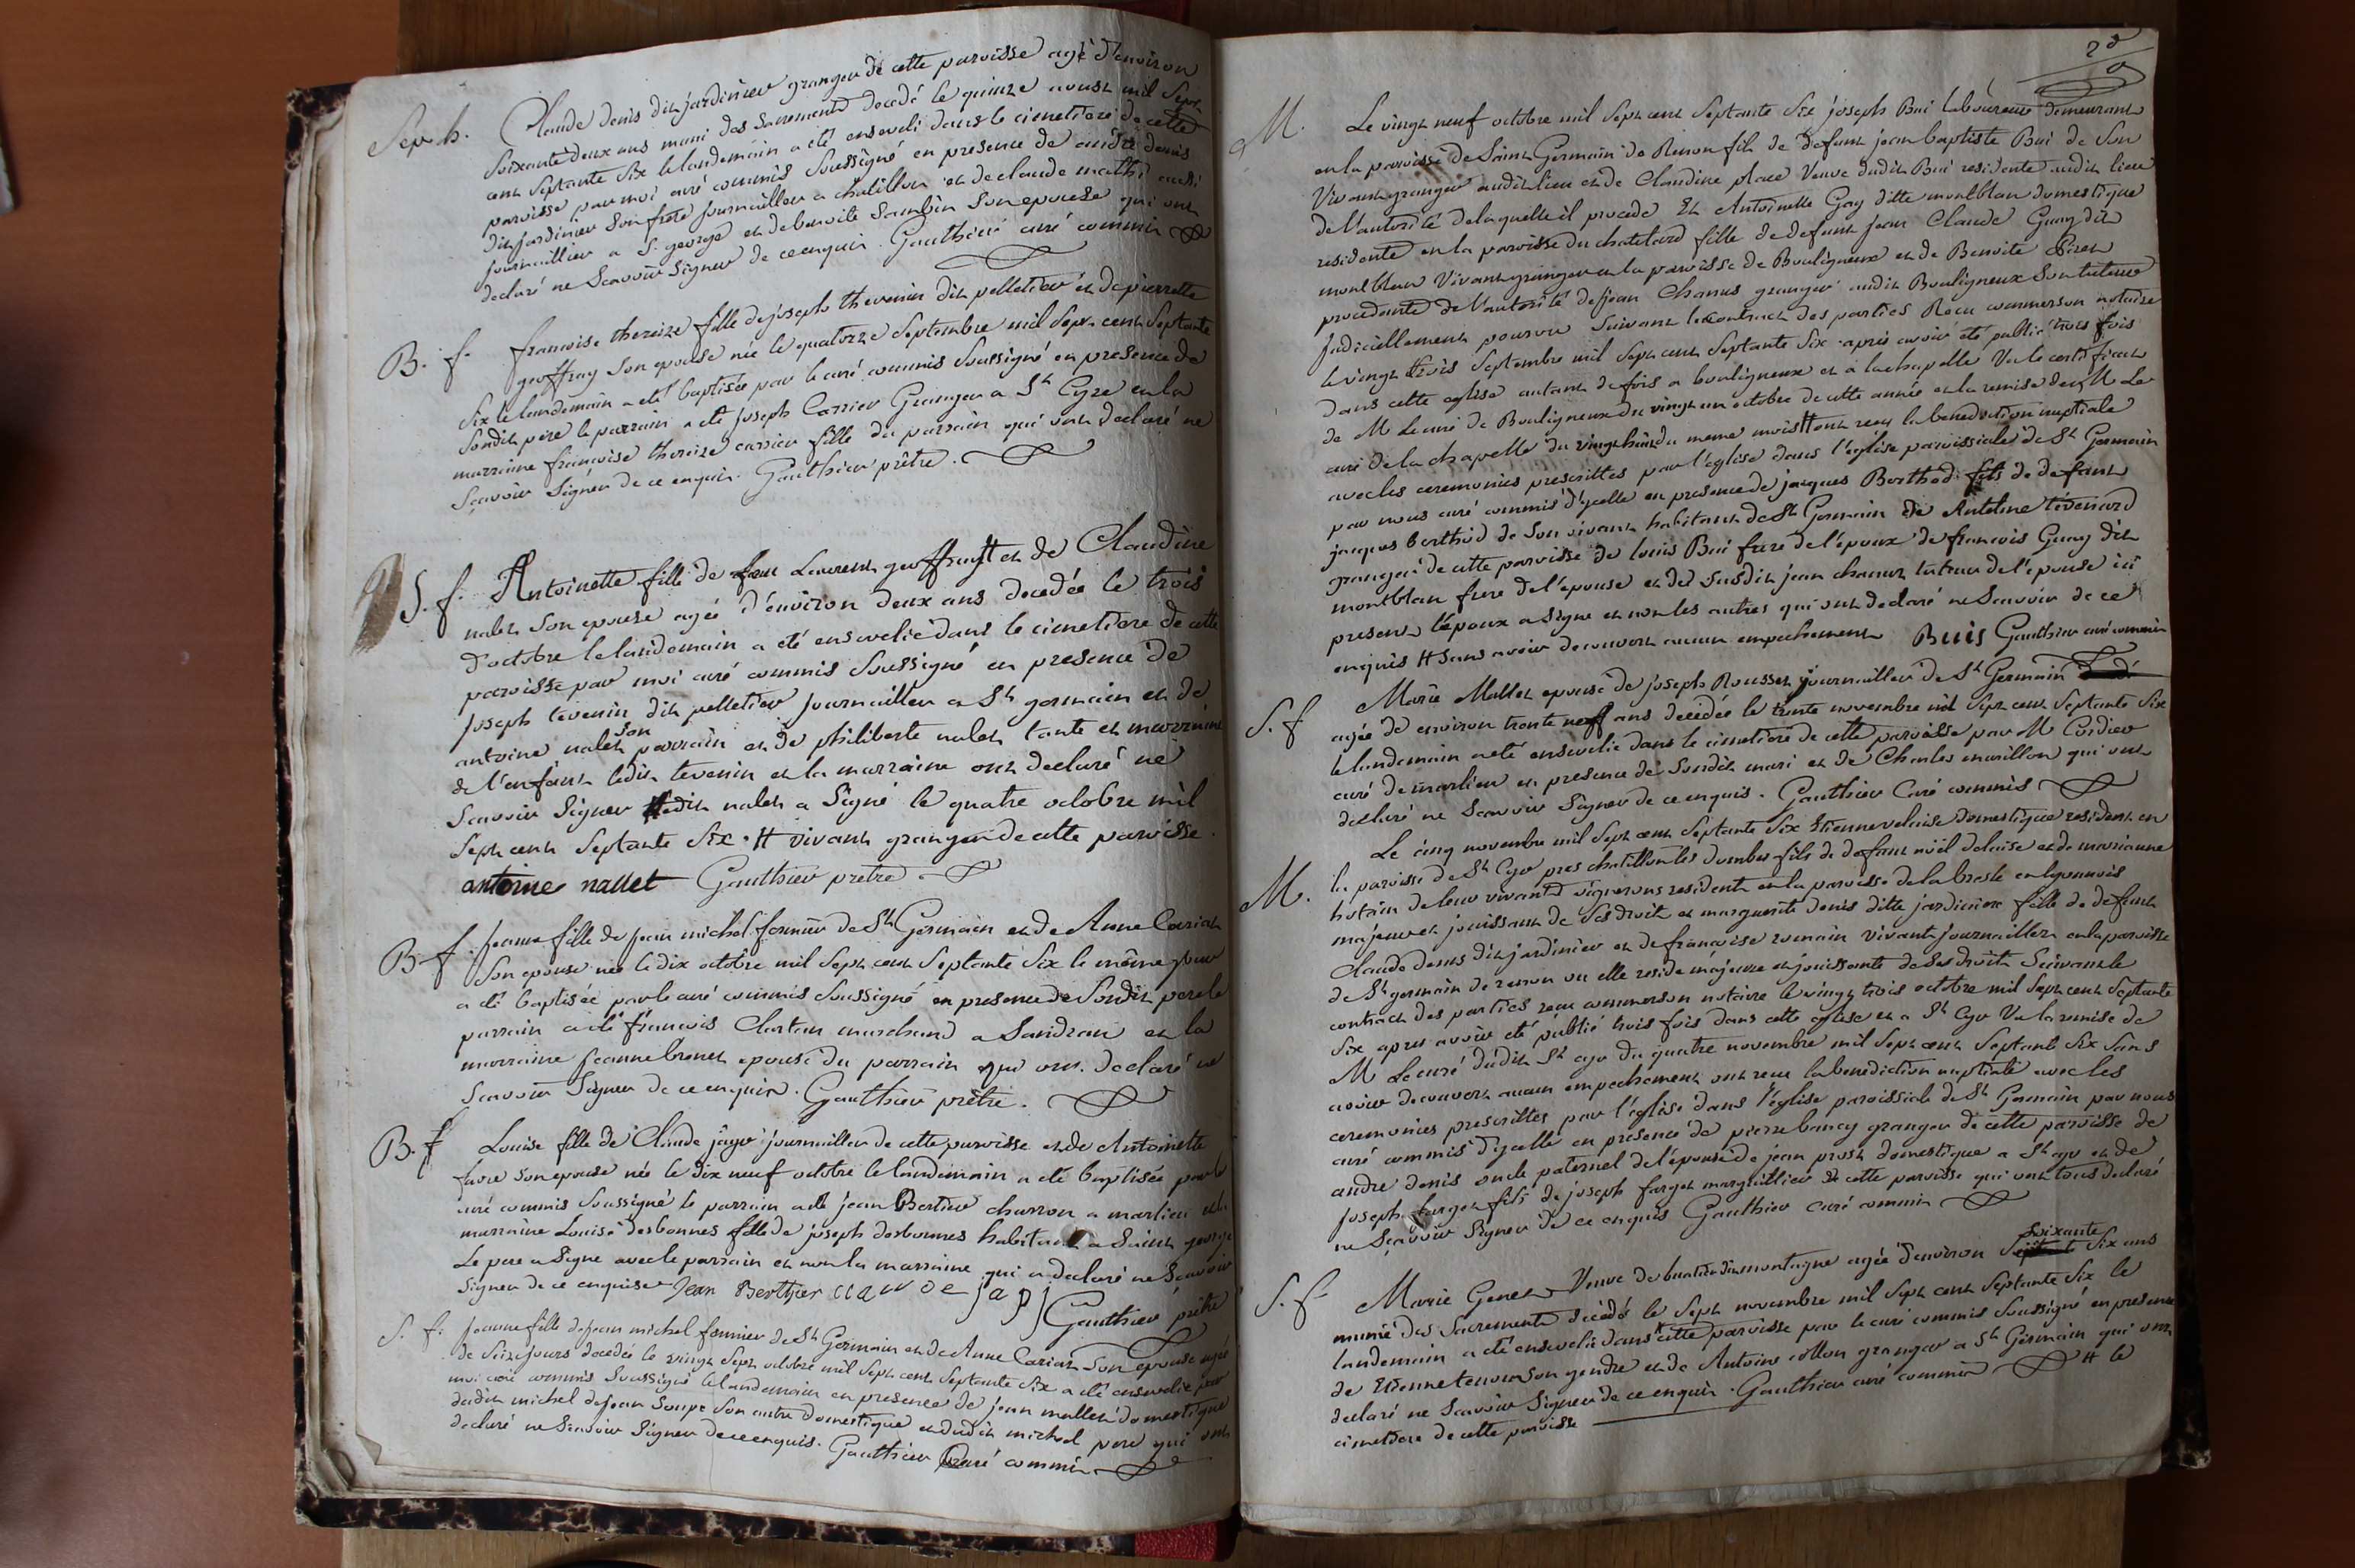 Sep. h. Claude denis dit jardinier granger de cette paroisse agé d'environ
soixante deux ans muni des sacrements decedé le quinze aoust mil sept
cent septante six le landemain a été enseveli dans le cimetiere de cette
paroisse par moi curé commis soussigné en presence de andré denis
dit jardinier son frere journaillier a chatillon et de claude mathi aussi
journaillier a S. george et de benoite sambin son epouse qui ont
declaré ne scavoir signer de ce enquis. Gauthier curé commis
B. f. francoise thereize fille de joseph thevenin dit pelletier et de pierrette
geoffray son epouse née le quatorze septembre mil sept cent septante
six le landemain a été baptisée par le curé commis soussigné en presence de
sondit pere le parrain a été joseph Carrier Granger a St Cyre et la
marraine francoise thereize carrier fille du parrain qui ont declaré ne
scavoir signer de ce enquis. Gauthier prêtre.
S. f. Antoinette fille de feu Laurent geoffray # et de Claudine
nalet son epouse agée d'environ deux ans decedée le trois
d'octobre le landemain a été ensevelie dans le cimetiere de cette
paroisse par moi curé commis soussigné en presence de
joseph tevenin dit pelletier journaillier a St germain et de
antoine nalet son parrain et de philiberte nalet tante et marraine
de l'enfant ledit tevenin et la marraine ont declaré ne
scavoir signer ledit nalet a signé le quatre octobre mil
sept cent septante six. # vivant granger de cette paroisse.
antoine nallet Gauthier prêtre
B. f. Jeanne fille de jean michel fermier de St Germain et de Anne Cariat
son epouse née le dix octobre mil sept cent septante six le même jour
a été baptisée par le curé commis soussigné en presence de sondit pere le
parrain a été francois Chartan marchand a Sandran et la
marraine jeanne brenet epouse du parrain qui ont declaré ne
scavoir signer de ce enquis. Gauthier prêtre.
B. f Louise fille de Claude jayr journaillier de cette paroisse et de Antoinette
favre son epouse née le dix neuf octobre le landemain a été baptisée par le
curé commis soussigné le parrain a été jean Bertier charron a marlieu et la
marraine Louise desbonnes fille de joseph desbonnes habitant a Saint george
Le pere a signe avec le parrain et non la marraine qui a declaré ne scavoir
signer de ce enquise Jean Berthier Gauthier prêtre
S. f. Jeanne fille de jean michel fermier de St Germain et de Anne Cariat son epouse agée
de seize jours decedée le vingt sept octobre mil sept cent septante six a été ensevelie par
moi curé commis soussigné le landemain en presence de jean mallet domestique
dudit michel de jean soupe son autre domestique et dudit michel pere qui ont
declaré ne scavoir signer de ce enquis. Gauthier Curé commis
M. Le vingt neuf octobre mil sept cent septante six joseph Bui laboureur demeurant
en la paroisse de Saint Germain de Renon fils de defunt jean baptiste Bui de son
vivant granger audit lieu et de Claudine place veuve dudit Bui residente audit lieu
de l'autorité de laquelle il procede Et Antoinette Gay ditte montblan domestique
residente en la paroisse du chatelard fille de defunt jean Claude Guay dit
montblan vivant granger en la paroisse de Bouligneux et de Benoite
procedante de l'autorité de jean Chanus granger audit Bouligneux son tuteur
judiciellement pourvu suivant le contract des parties Recu commerson notaire
le vingt trois septembre mil sept cent septante six apres avoir été publié trois fois
dans cette eglise autant de fois a bouligneux et a la chapelle Vu le certificat
de M Le curé de Bouligneux du vingt un octobre de cette année et la remise de M Le
curé de la chapelle du vingt huit du meme mois # ont recu la benediction nuptiale
avec les ceremonies prescrittes par l'eglise dans l'eglise paroissiale de St Germain
par nous curé commis d'ycelle en presence de jacques Berthod fils de defunt
jacques berthod de son vivant habitant de St Germain de Antoine tévenard
granger de cette paroisse de louis Bui frere de l'époux de francois Guay dit
montblan frere de l'épouse et du susdit jean chanus tuteur de l'epouse ici
present l'époux a signe et non les autres qui ont declaré ne scavoir de ce
enquis # sans avoir decouvert aucun empechement Buis Gauthier curé commis
S. f Marie Mallet epouse de joseph Rousset journaillier de St Germain
agée de environ trente neuf ans decedée le trente novembre mil sept cent septante six
le landemain a été ensevelie dans le cimetiere de cette paroisse par M Cordier
curé de marlieu en presence de sondit mari et de Charles marillon qui ont
declaré ne scavoir signer de ce enquis. Gauthier Curé commis
M. Le cinq novembre mil sept cent septante six Etienne velaise domestique resident en
la paroisse de St Cyr pres chatillon les dombes fils de defunt noël delaise et de marianne
hotain de leur vivant vignerons residents en la paroisse de la bresle en lyonnois
majeur et jouissant de ses droits et marguerite denis ditte jardiniere fille de defunt
Claude denis dit jardinier et de francoise romain vivant journaillier en la paroisse
de St germain de renon ou elle reside majeure et jouissante de ses droits suivant le
contract des parties recu commerson notaire le vingt trois octobre mil sept cent septante
six apres avoir été publié trois fois dans cette eglise et a St Cyr Vu la remise de
M Le curé dudit St cyr du quatre novembre mil sept cent septante six sans
avoir decouvert aucun empechement ont recu la benediction nuptiale avec les
ceremonies prescrittes par l'église dans l'église paroissiale de St Germain par nous
curé commis d'ycelle en presence de pierre bancy granger de cette paroisse de
andre denis oncle paternel de l'épouse de jean prost domestique a St cyr et de
joseph farget fils de joseph farget marguillier de cette paroisse qui ont tous declaré
ne scavoir signer de ce enquis Gauthier curé commis
S. f Marie Genet Veuve de dit montagne agée d'environ soixante six ans
munie des sacrements decedé le sept novembre mil sept cent septante six le
landemain a été ensevelie dans # cette paroisse par le curé commis soussigné en presence
de Etienne tenour son gendre et de Antoine collon granger a St Germain qui ont
declaré ne scavoir signer de ce enquis. Gauthier curé commis # le
cimetiere de cette paroisse